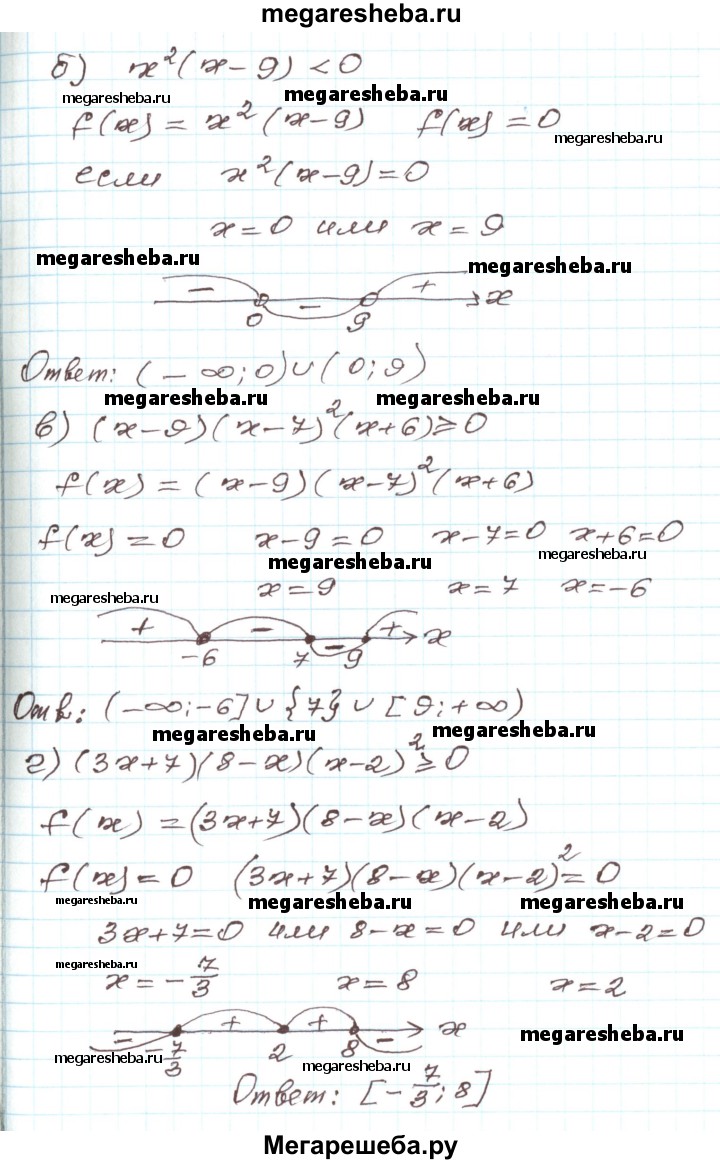 megaresheba.ru
б) x²(x-9)<0
megaresheba.ru megaresheba.ru
f(x)=x²(x-9) f(x)=0
megaresheba.ru
если x²(x-9)=0
x=0 или x=9
megaresheba.ru megaresheba.ru
- - + x
0 9
Ответ: (-∞;0)∪(0;9)
megaresheba.ru megaresheba.ru
в) (x-9)(x-7)²(x+6)≥0
f(x)=(x-9)(x-7)²(x+6)
f(x)=0 x-9=0 x-7=0 x+6=0
megaresheba.ru megaresheba.ru
megaresheba.ru x=9 x=7 x=-6
+ - - + x
-6 7 9
Отв: (-∞;-6]∪{7}∪[9;+∞)
megaresheba.ru megaresheba.ru
г) (3x+7)(8-x)(x-2)²≥0
f(x)=(3x+7)(8-x)(x-2)
f(x)=0 (3x+7)(8-x)(x-2)²=0
megaresheba.ru megaresheba.ru megaresheba.ru
3x+7=0 или 8-x=0 или x-2=0
megaresheba.ru
x=-7/3 x=8 x=2
- + + - x
megaresheba.ru
-7/3 2 8
megaresheba.ru megaresheba.ru
Ответ: [-7/3;8]
Мегарешеба.ру